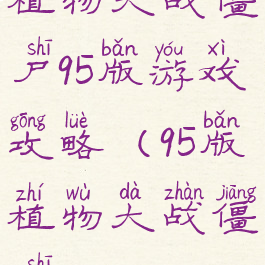 植物大战僵
shī bǎn yóu xì
尸95版游戏
gōng lüè bǎn
攻略（95版
zhí wù dà zhàn jiāng
植物大战僵
shī